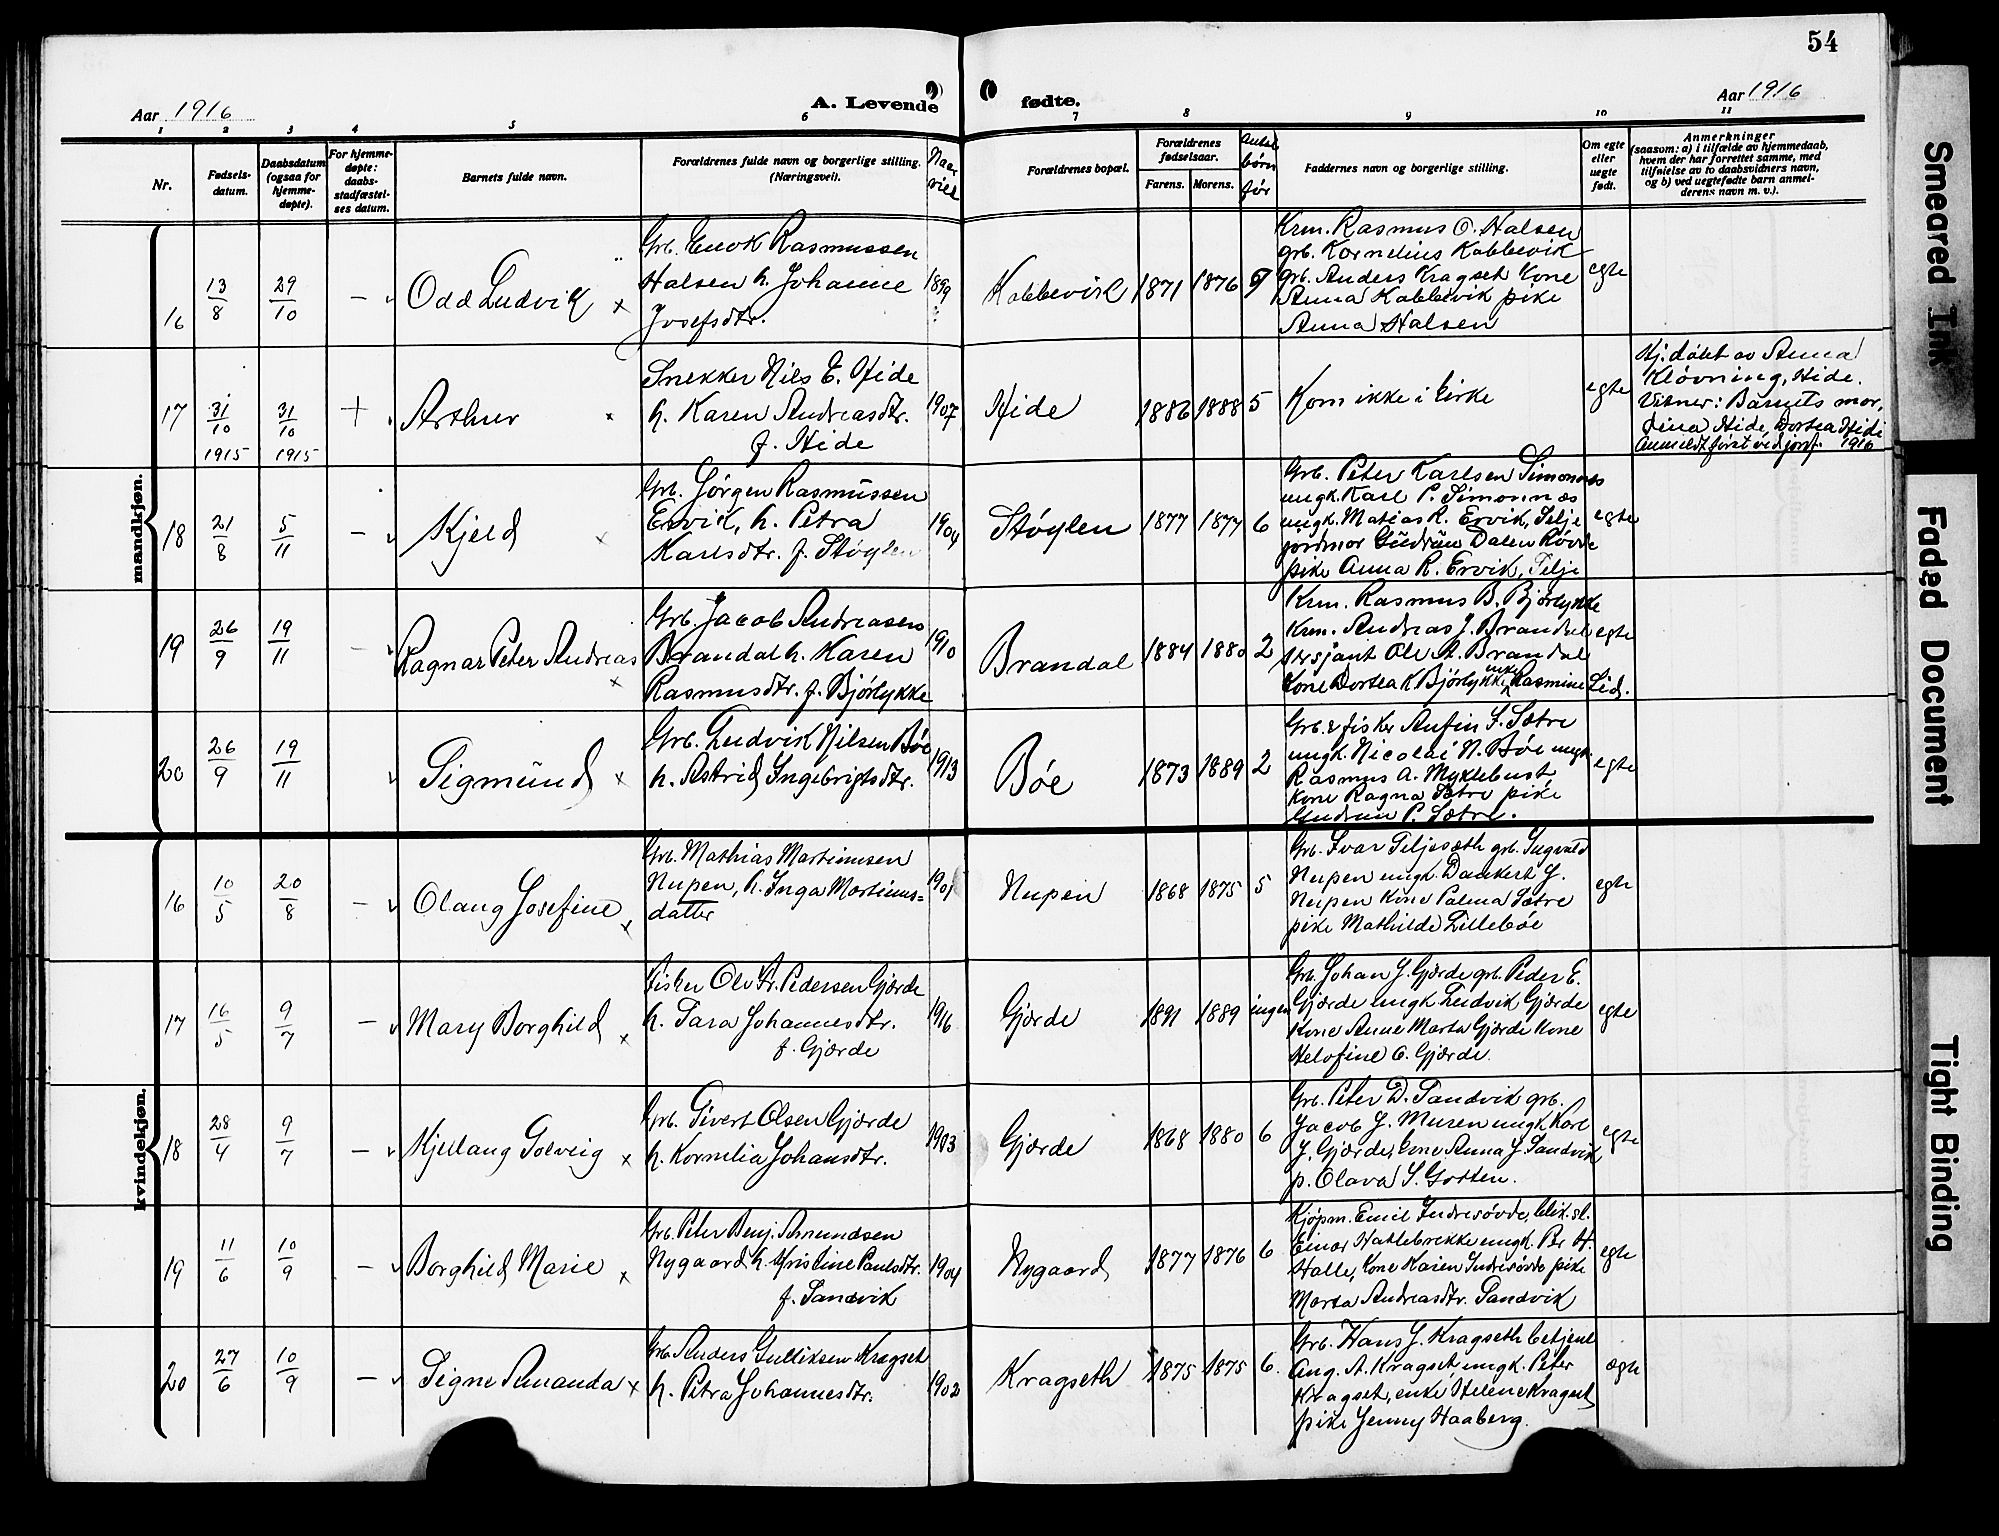 54
Aar 1916
A. Levende fødte.
Aar 1916
1 2 3 4 5 6 7 8 9 10 11
Nr.
Fødsels-
datum.
Daabsdatum
(ogsaa for
hjemme-
døpte).
For hjemme-
døpte:
daabs-
stadfæstel-
ses datum.
Barnets fulde navn.
Forældrenes fulde navn og borgerlige stilling.
(Næringsvei).
Naar
viet
Forældrenes bopæl.
Forældrenes
fødselsaar.
Farens. Morens.
Antal
børn
før
Faddernes navn og borgerlige stilling.
Om egte
eller
uegte
født.
Anmerkninger
(saasom: a) i tilfælde av hjemmedaab,
hvem der har forrettet samme, med
tilføielse av to daabsvidners navn,
og b) ved uegtefødte barn anmel-
derens navn m. v.).
mandkjøn.
16 13/8 29/10 – Odd Ludvik
Grb. Enok Rasmussen
Halsen h. Johanne
Josefsdtr.
1899
Kobbevik 1871 1876
Krm. Rasmus O. Halsen
grb. Kornelius Kobbevik
grb. Anders Kragset kone
Anna Kobbevik pike
Anna Halsen
egte
17 31/10 1915 31/10 1915 + Arthur
Snekker Nils E. Hide
h. Karen Andreasdtr.
f. Hide
1907
Hide 1886 1888 5
Kom ikke i kirke
egte
Hj.døbt av Anna
Kløvning, Hide.
Vitner: Barnets mor,
Lina Hide, Dortea Hide
Anmeldt først ved jonf. 1916
18 21/8 5/11 – Kjeld
Grb. Jørgen Rasmussen
Ervik, h. Petra
Karlsdtr. f. Støylen
1904
Støylen 1877 1877 6
Grb. Peter Karlsen Simonnes
ungk. Karl P. Simonnæs
ungk. Matias R. Ervik, Selje
jordmor Gudrun Dalen Røvde
pike Anna R. Ervik, Selje
egte
19 26/9 19/11 – Ragnar Peter Andreas
Grb. Jacob Andreasen
Brandal h. Karen
Rasmusdtr. f. Bjørlykke
1910
Brandal 1884 1880 2
Krm. Rasmus B. Bjørlykke
Krm. Andreas J. Brandal
sersjant Ole A. Brandal
kone Dortea K Bjørlykke enke Rasmine Lid.
egte
20 26/9 19/11 Sigmund
Grb. Ludvik Nilsen Bøe
h. Astrid Ingebrigtsdtr.
1913
Bøe 1873 1889 2
Grb. & fisker Anfin S. Sætre
ungk. Nicolai N. Bøe ungk.
Rasmus A. Myklebust
kone Ragna Sætre pike
Gudrun P. Sætre.
egte
kvindekjøn.
16 10/5 20/8 – Olaug Josefine
Grb. Mathias Martinusen
Nupen, h. Inga Martinus=
datter
1901
Nupen 1868 1875 5
Grb. Ivar Siljesæth grb. Ingvald
Nupen ungk. Dankert J.
Nupen kone Palma Sætre
pike Mathilde Lillebøe
egte
17 16/5 9/7 – Mary Borghild
Fisker Ole Fr. Pedersen Gjærde
h. Sara Johannesdtr.
f. Gjærde
1916
Gjærde 1891 1889 ingen
Grb. Johan J. Gjærde grb. Peder E.
Gjærde ungk Ludvik Gjærde
kone Anne Marta Gjærde kone
Helofine O. Gjærde.
egte
18 28/4 9/7 – Kjellaug Solveig
Grb. Sivert Olsen Gjærde
h. Kornelia Johansdtr.
1903
Gjærde 1868 1880 6
Grb. Peter D. Sandvik grb.
Jacob J. Muren ungk Karl
J. Gjærde, kone Anna J. Sandvik
p. Olava S. Botten.
egte
19 11/6 10/9 – Borghild Marie
Grb. Peter Benj. Amundsen
Nygaard h. Kristine Paulsdtr.
f. Sandvik
1904
Nygaard 1877 1876 6
Kjøpm. Emil Indresøvde, blik.sl.
Einar Hallebrekke ungk. Per H.
Halle, kone Karen Indresøvde pike
Marta Andreasdtr. Sandvik
egte
20 27/6 10/9 – Signe Amanda
Grb. Anders Gulliksen Kragset
h. Petra Johannesdtr.
1902
Kragseth 1875 1875 6.
Grb. Hans J. Kragseth betjent
Aug. A. Kragset, ungk. Peter
Kragset, enke Helene Kragset,
pike Jenny Haaberg.
egte
Smeared Ink
Faded Document
Tight Binding